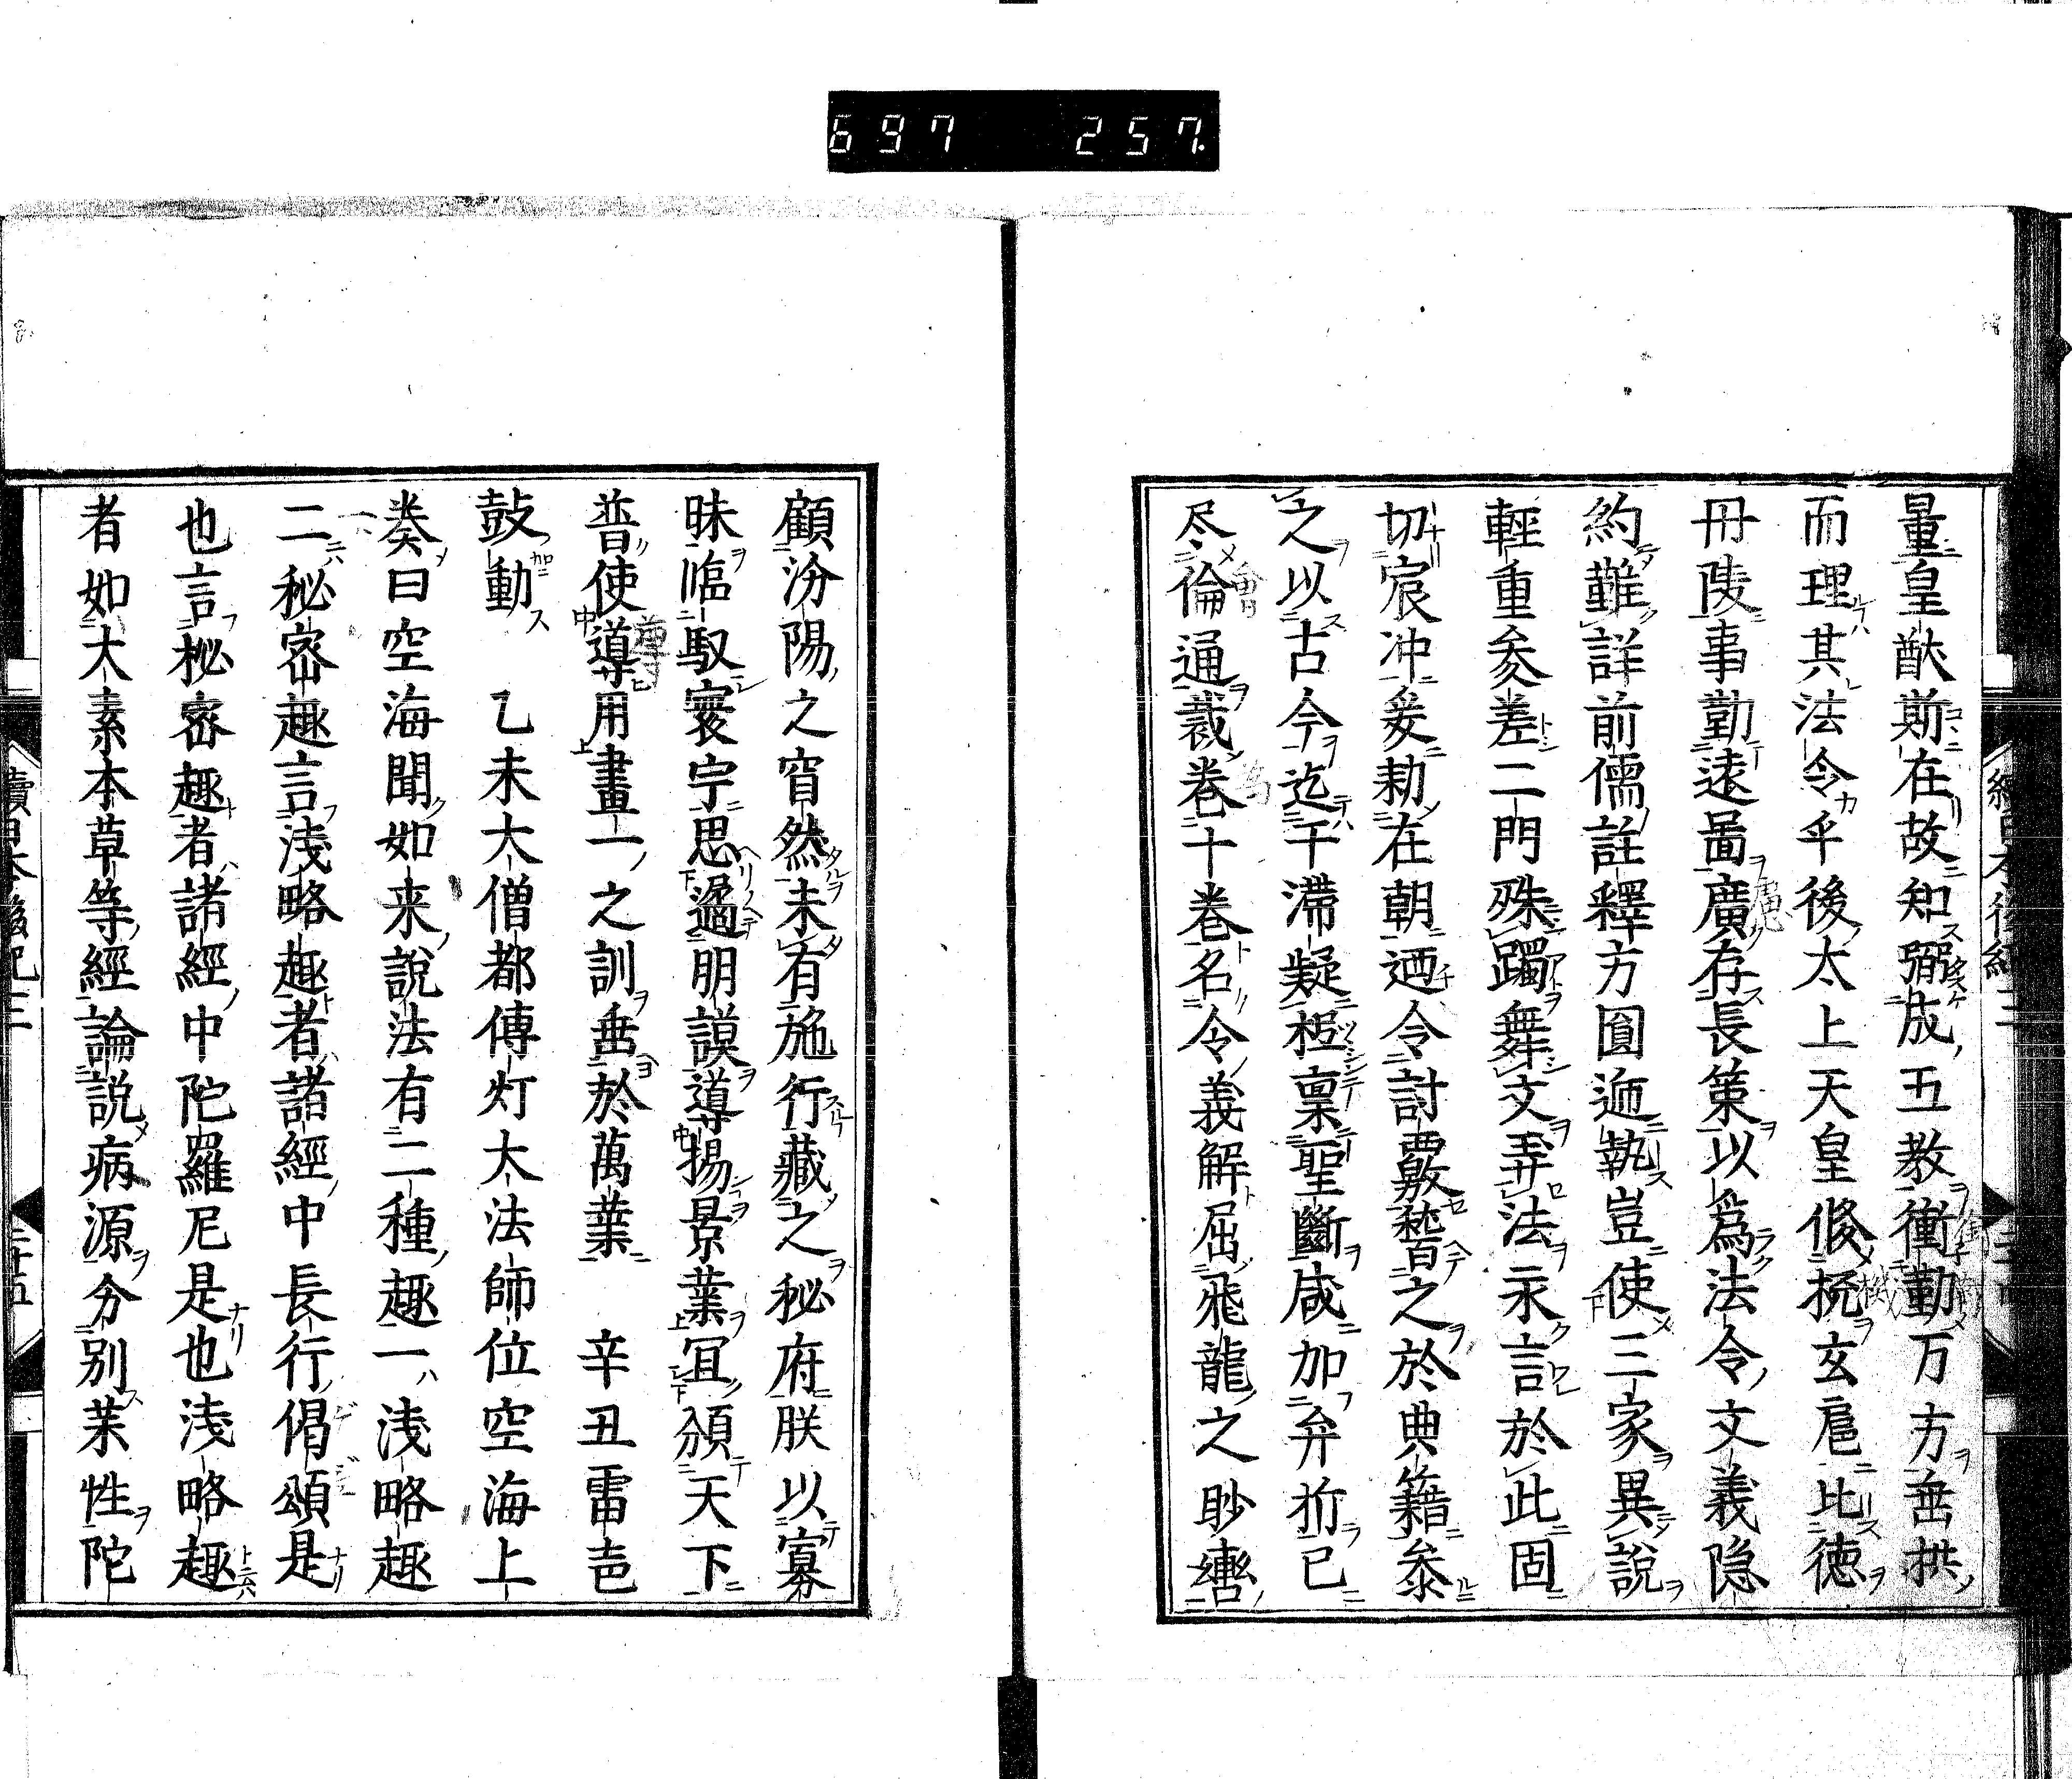 697 257.
量皇猷斯在故知弼成五教衝勤万方垂拱
而理其法令乎後太上天皇倐挩玄扈比徳
丹陵事勤遠啚廣存長策以為法令文義隐
約難詳前儒註釋方圓逓執豈使三家異說
輕重叅差二門殊躅舞文弄法永言於此固
切宸冲爰勅在朝迺令討覈稽之於典籍叅
之以古今迄于滞疑極稟聖斷咸加弁析已
尽倫通裁卷十卷名令義解屈飛龍之眇轡
顧汾陽之窅然未有施行藏之秘府朕以寡
昧臨馭寰宇思遏明謨導揚景業冝頒天下
普使導用畫一之訓垂於萬葉 辛丑雷㐮
鼔動 乙未大僧都傳灯大法師位空海上
奏曰空海聞如来說法有二種趣一浅略趣
二秘密趣言浅略趣者諸經中長行偈頌是
也言秘密趣者諸經中陀羅尼是也浅略趣
者如大素本草等經論説病源分別茱性陀
續日本後紀三